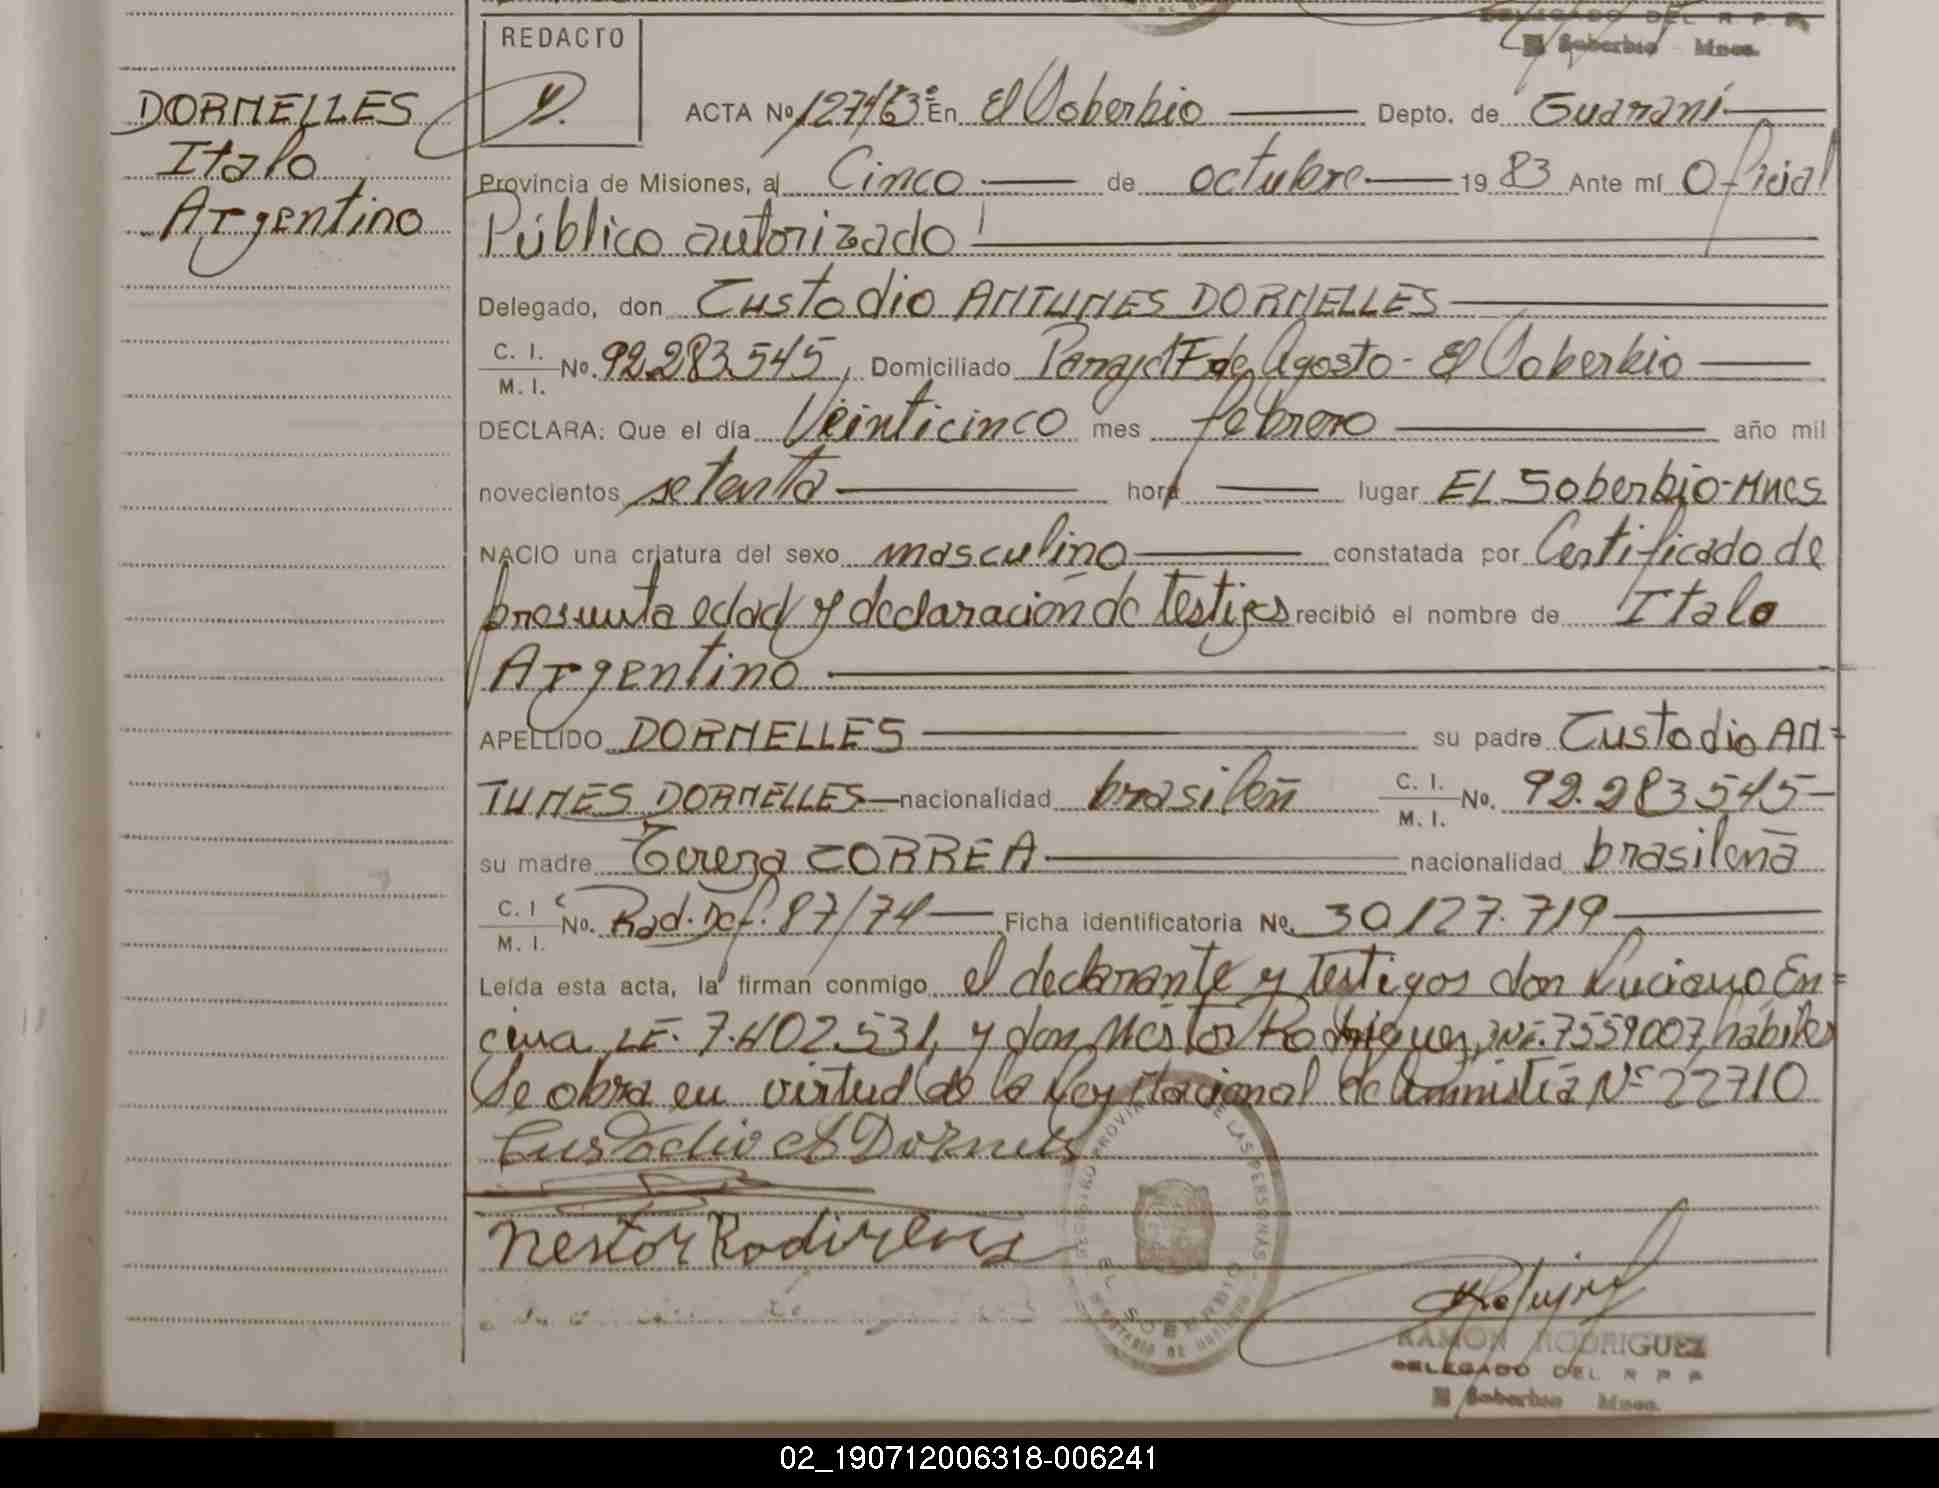 DELEGADO DEL R P P
El Soberbio Mnes.
REDACTO
DORNELLES
Italo
Argentino
ACTA Nº En El Soberbio Depto. de Guaraní
Provincia de Misiones, al Cinco de octubre 1983 Ante mí Oficial
Público autorizado
Delegado, don Custodio ANTUNES DORNELLES
C. I. M. I. No. 92.283.545, Domiciliado de Agosto - El Soberbio
DECLARA: Que el día Veinticinco mes febrero año mil
novecientos setenta hora lugar EL Soberbio-Mnes
NACIO una criatura del sexo masculino constatada por Certificado de
presunta edad y declaración de testigos recibió el nombre de Italo
Argentino
APELLIDO DORNELLES su padre Custodio AN=
TUNES DORNELLES nacionalidad brasileñ C. I. M. I. No. 92.283.545
su madre Tereza CORREA nacionalidad brasileña
C. I M. I. No. Rad. Def. 87/74 Ficha identificatoria No. 30.127.719
Leída esta acta, la firman conmigo el declarante y testigos don Luciano En=
cina LE. 7.402.531, y don Néstor Rodriguez, DNI. 7559007, hábiles
Se obra en virtud de la Ley Nacional de Amnistía Nº 22710
Custodio A Dornels
Nestor
REGISTRO PROVINCIAL DE LAS PERSONAS
EL SOBERBIO
RAMON RODRIGUEZ
DELEGADO DEL R P P
El Soberbio Mnes.
02_190712006318-006241